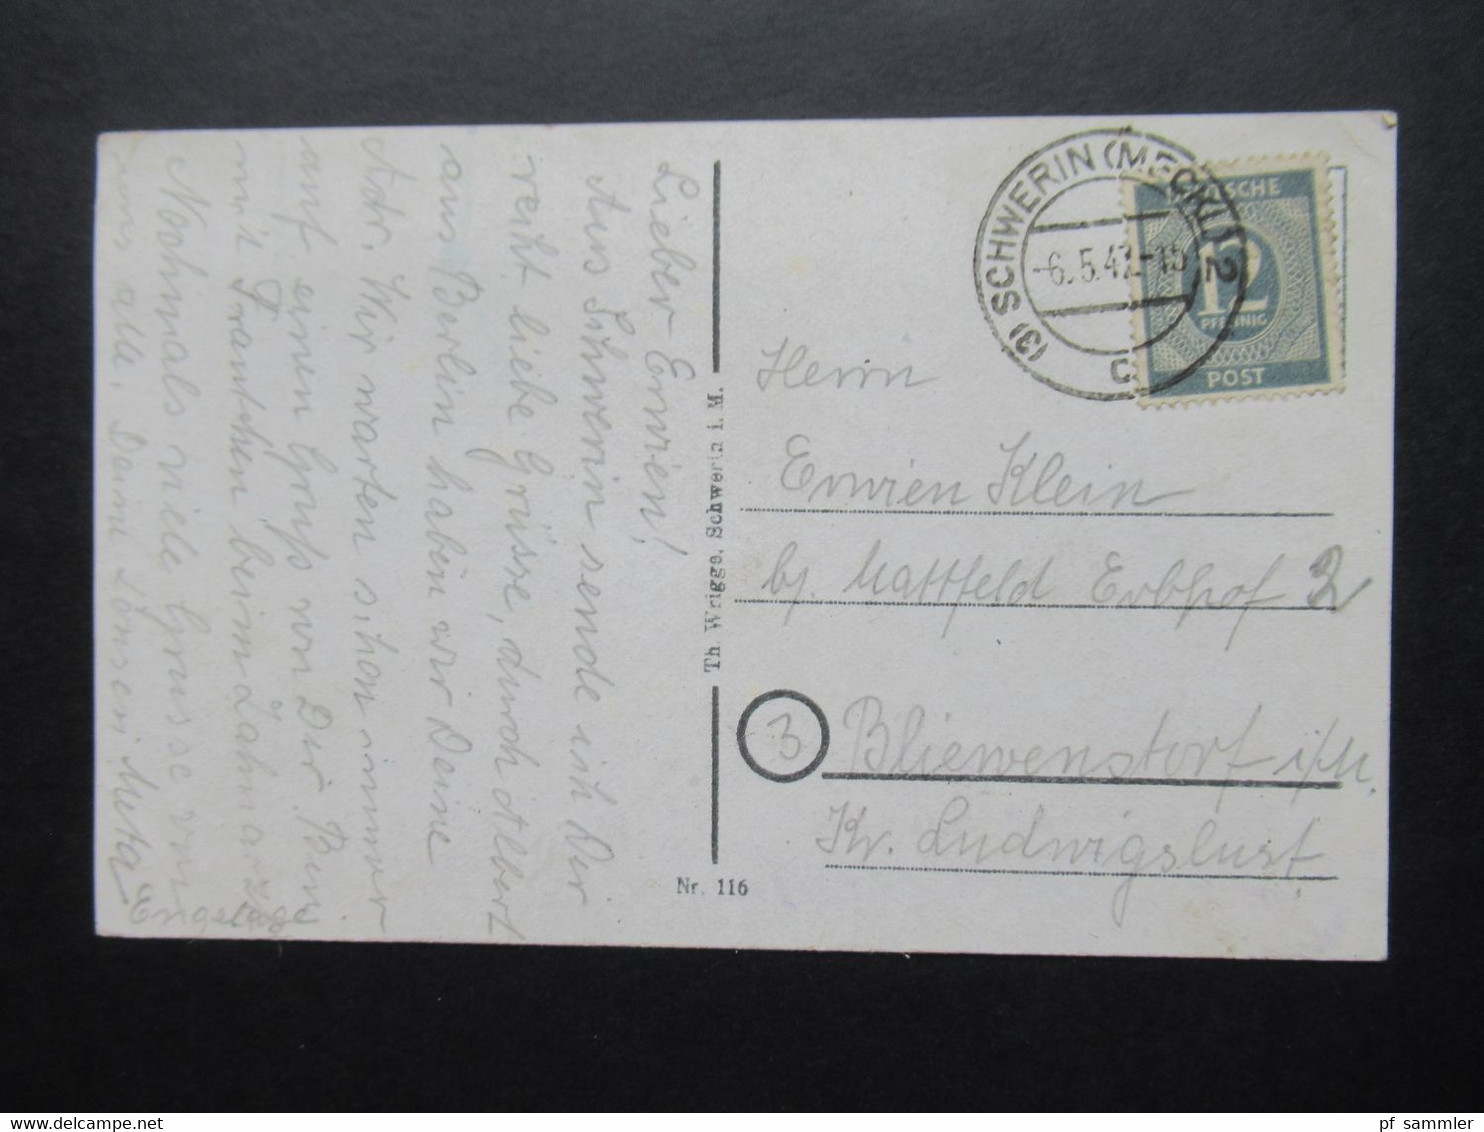 Lieber Erwien!
Aus Schwerin sende ich Dir
recht liebe Grüsse, durch Albert
aus Berlin haben wir Deine
Adr. Wir warten schon immer
auf einen Gruß von Dir. Bin
mit Frautchen beim Zahnarzt
Nochmals viele Grüsse von
uns alle. Deine Lönsein Meta
Engel
Th. Wrigge, Schwerin i. M.
Nr. 116
(3) SCHWERIN (MECKL) 2
-6.5.47.-15
c
DEUTSCHE
12
PFENNIG
POST
Herrn
Erwien Klein
bj. Mattfeld Erbhof 2
3
Bliewenstorf i/M.
Kr. Ludwigslust
www.delcampe.net
pf sammler